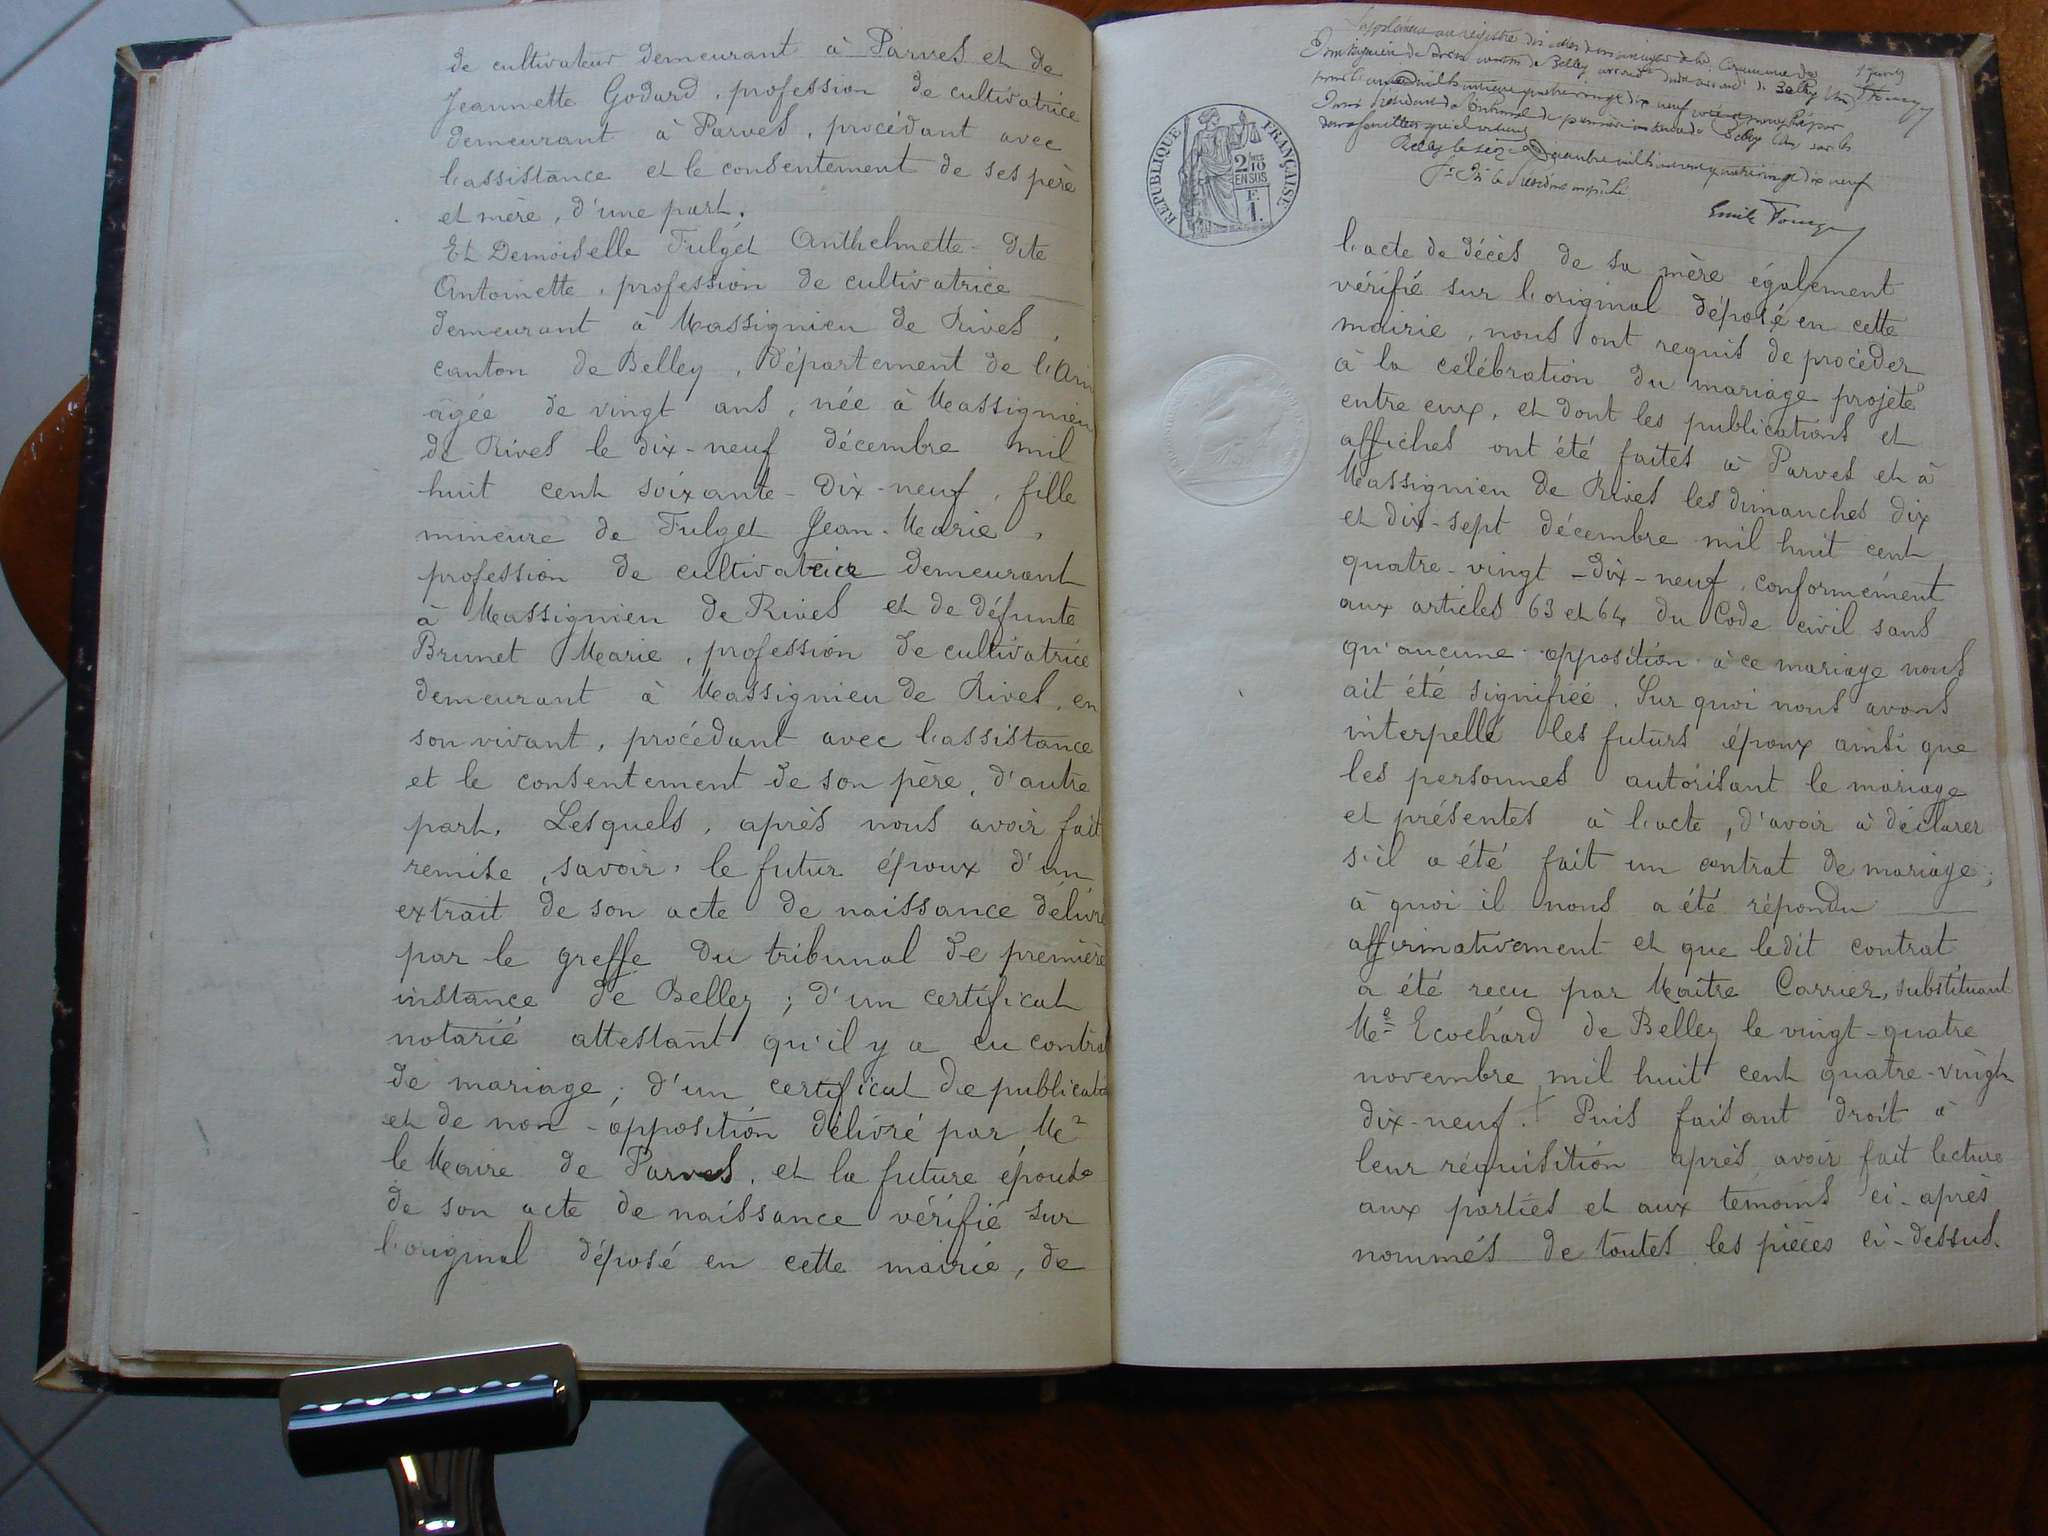 de cultivateur demeurant à Parves et de
Jeannette Godard, profession de cultivatrice
demeurant à Parves, procédant avec
l'assistance et le consentement de ses père
et mère, d'une part.
Et Demoiselle Fulget Anthelmette dite
Antoinette, profession de cultivatrice
demeurant à Massignieu de Rives,
canton de Belley, département de l'Ain
âgée de vingt ans, née à Massignieu
de Rives le dix-neuf décembre mil
huit cent soixante-dix-neuf, fille
mineure de Fulget Jean-Marie,
profession de cultivateur demeurant
à Massignieu de Rives et de défunte
Brunet Marie, profession de cultivatrice
demeurant à Massignieu de Rives, en
son vivant, procédant avec l'assistance
et le consentement de son père, d'autre
part. Lesquels, après nous avoir fait
remise, savoir, le futur époux d'un
extrait de son acte de naissance délivré
par le greffe du tribunal de première
instance de Belley; d'un certificat
notarié attestant qu'il y a eu contrat
de mariage; d'un certificat de publication
et de non-opposition délivré par Mr
le Maire de Parves, et la future épouse
de son acte de naissance vérifié sur
l'original déposé en cette mairie, de
Supplément au registre des actes de mariage de la Commune de
Massignieu de Rives canton de Belley arrond. de Belley (Ain)
pour l'an mil huit cent quatre vingt dix neuf
Président du tribunal de première instance de Belley
Belley le Décembre mil huit cent quatre vingt dix neuf
Emile
RÉPUBLIQUE FRANÇAISE
2/10
EN SUS
F.
1.
l'acte de décès de sa mère également
vérifié sur l'original déposé en cette
mairie, nous ont requis de procéder
à la célébration du mariage projeté
entre eux, et dont les publications et
affiches ont été faites à Parves et à
Massignieu de Rives les dimanches dix
et dix-sept décembre mil huit cent
quatre-vingt-dix-neuf, conformément
aux articles 63 et 64 du Code civil sans
qu'aucune opposition à ce mariage nous
ait été signifiée. Sur quoi nous avons
interpellé les futurs époux ainsi que
les personnes autorisant le mariage
et présentes à l'acte, d'avoir à déclarer
s'il a été fait un contrat de mariage;
à quoi il nous a été répondu
affirmativement et que ledit contrat
a été reçu par Maître Carrier, substituant
Me Ecochard de Belley le vingt-quatre
novembre mil huit cent quatre-vingt
dix-neuf. Puis faisant droit à
leur réquisition après avoir fait lecture
aux parties et aux témoins ci-après
nommés de toutes les pièces ci-dessus.